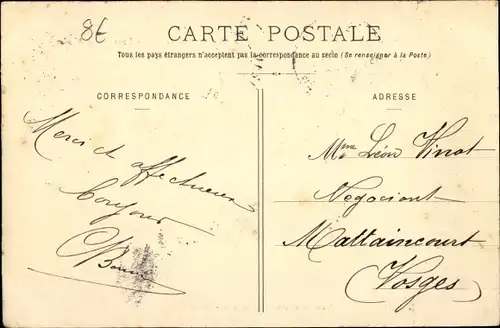 8€
CARTE POSTALE
Tous les pays étrangers n'acceptent pas la correspondance au recto (Se renseigner à la Poste)
CORRESPONDANCE
ADRESSE
Merci et affectueux
bonjour
Mme Léon Vinot
Négociant
Mattaincourt
(Vosges)